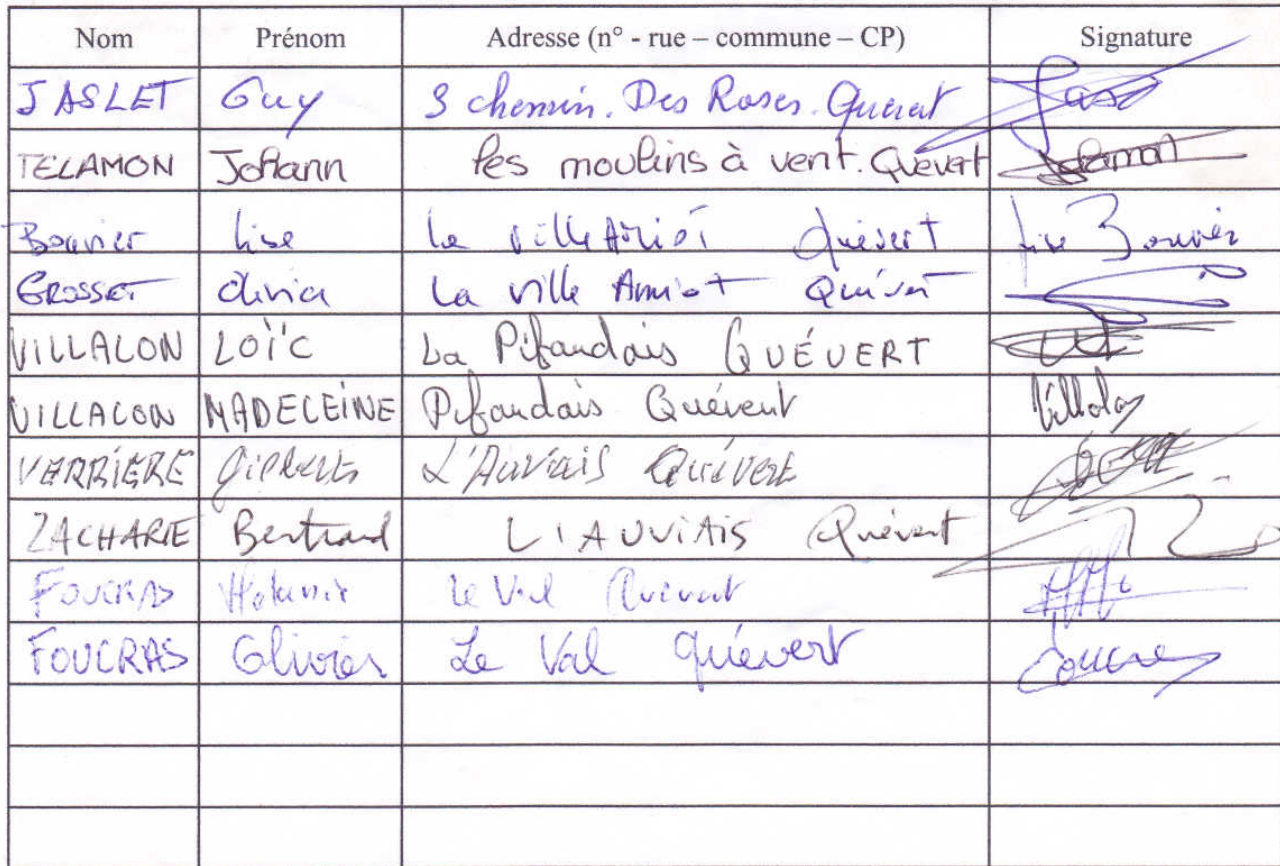 Nom Prénom Adresse (n° - rue – commune – CP) Signature
JASLET Guy 3 chemin. Des Roses. Quévert
TELAMON Johann les moulins à vent. Quévert
Bouvier Lise La ville Amiot Quévert Lise Bouvier
GROSSET Olivier La ville Amiot Quévert
VILLALON LOÏC La Pifaudais QUÉVERT
VILLALON MADELEINE Pifaudais Quévert Villalon
VERRIERE Gilberte L'Auviais Quévert
ZACHARIE Bertrand L'AUVIAIS Quévert
FOUCRAS Le Val Quévert
FOUCRAS Olivier Le Val Quévert Foucras